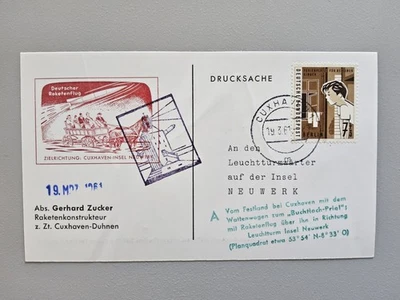 Deutscher
Raketenflug
ZIELRICHTUNG: CUXHAVEN-INSEL NEUWERK
19. MRZ. 1961
Abs. Gerhard Zucker
Raketenkonstrukteur
z. Zt. Cuxhaven-Duhnen
DRUCKSACHE
CUXHAVEN
19.3.61
DEUTSCHE BUNDESPOST
BERLIN
7
An den
Leuchtturmwärter
auf der Insel
NEUWERK
A Vom Festland bei Cuxhaven mit dem
Wattenwagen zum "Buchtloch-Priel";
mit Raketenflug über ihn in Richtung
Leuchtturm Insel Neuwerk
(Planquadrat etwa 53° 54' N-8° 33' O)